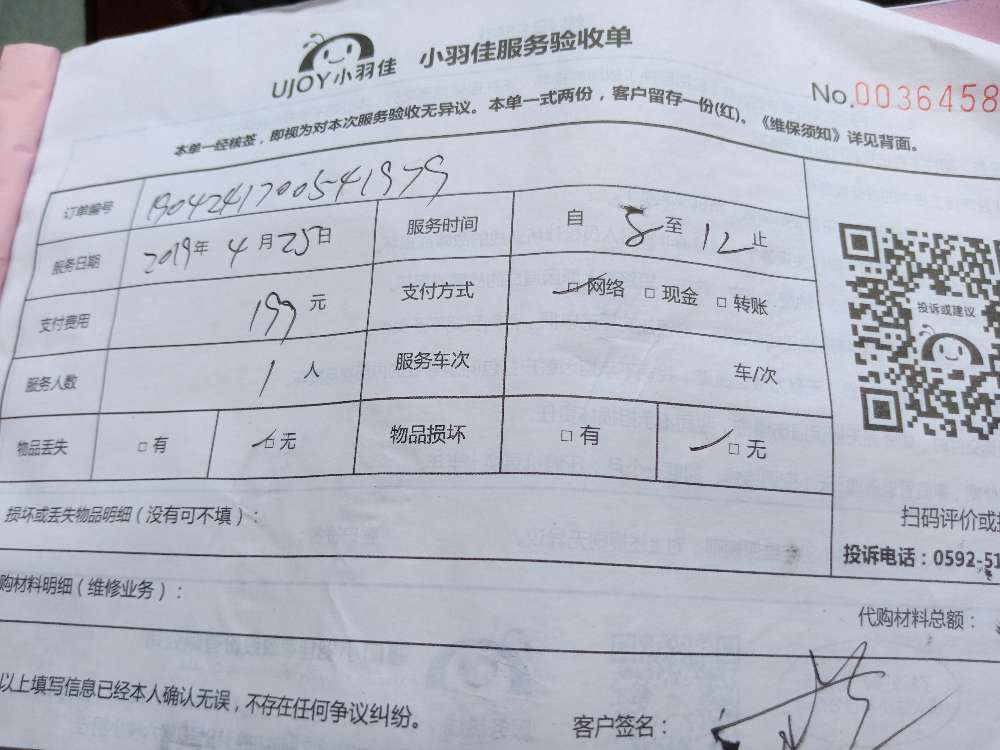 UJOY小羽佳 小羽佳服务验收单
No.0036458
本单一经核签，即视为对本次服务验收无异议。本单一式两份，客户留存一份(红)。《维保须知》详见背面。
订单编号 1904241700541979
服务日期 2019年4月25日 服务时间 自 8 至 12 止
支付费用 199 元 支付方式 □网络 □现金 □转账
服务人数 1 人 服务车次 车/次
物品丢失 □有 □无 物品损坏 □有 □无
投诉或建议
损坏或丢失物品明细（没有可不填）：
扫码评价或
投诉电话：0592-51
购材料明细（维修业务）：
代购材料总额：
以上填写信息已经本人确认无误，不存在任何争议纠纷。
客户签名：